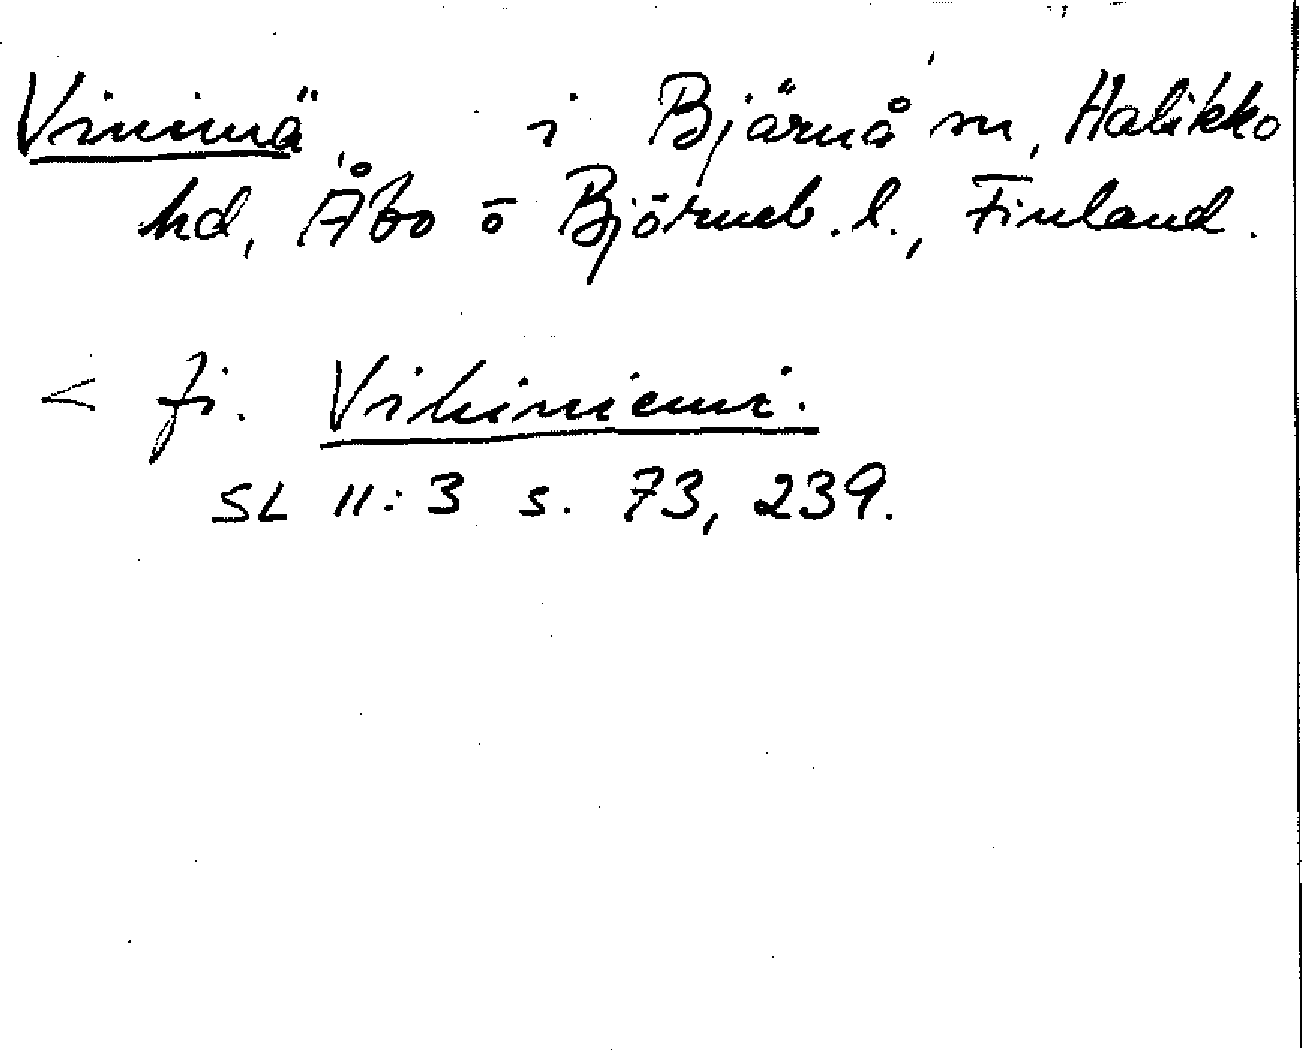 Vinimä i Bjärnå sn, Halikko
hd, Åbo o Björneb. l., Finland.
< fi. Vihiniemi.
SL 11:3 s. 73, 239.